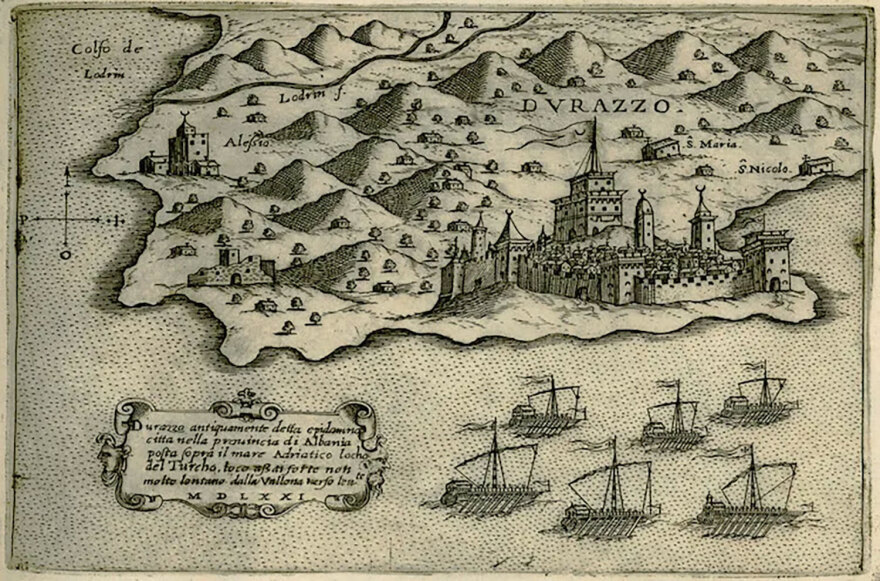 Colfo de
Lodrin
Lodrin f.
DVRAZZO.
Alessio
S. Maria.
S. Nicolo.
P
L
O
Durazzo antiquamente detta epidamno
citta nella prouincia di Albania
posta sopra il mare Adriatico locho
del Turcho, loco assai forte non
molto lontano dalla Vallona verso
MDLXXI